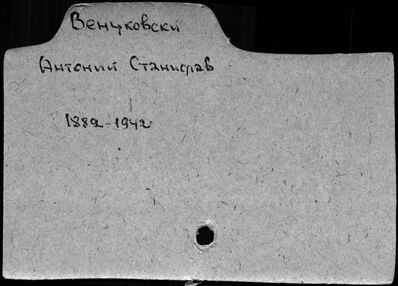 Венуковски
Антоний Станислав
1882-1942